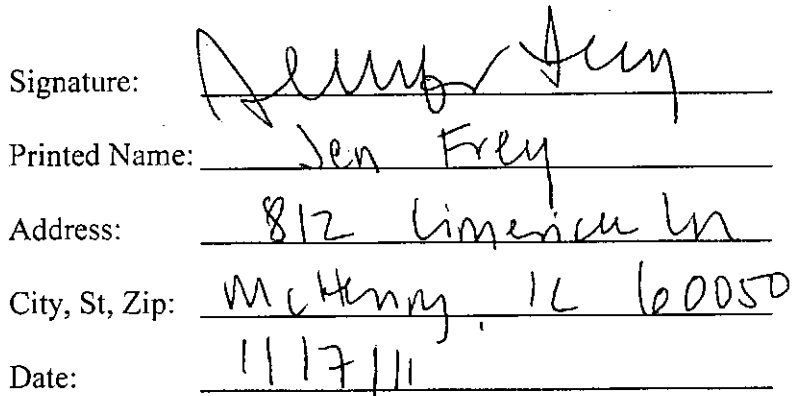 Signature: Jennifer Frey
Printed Name: Jen Frey
Address: 812 Limerick Ln
City, St, Zip: McHenry, IL 60050
Date: 11/7/11